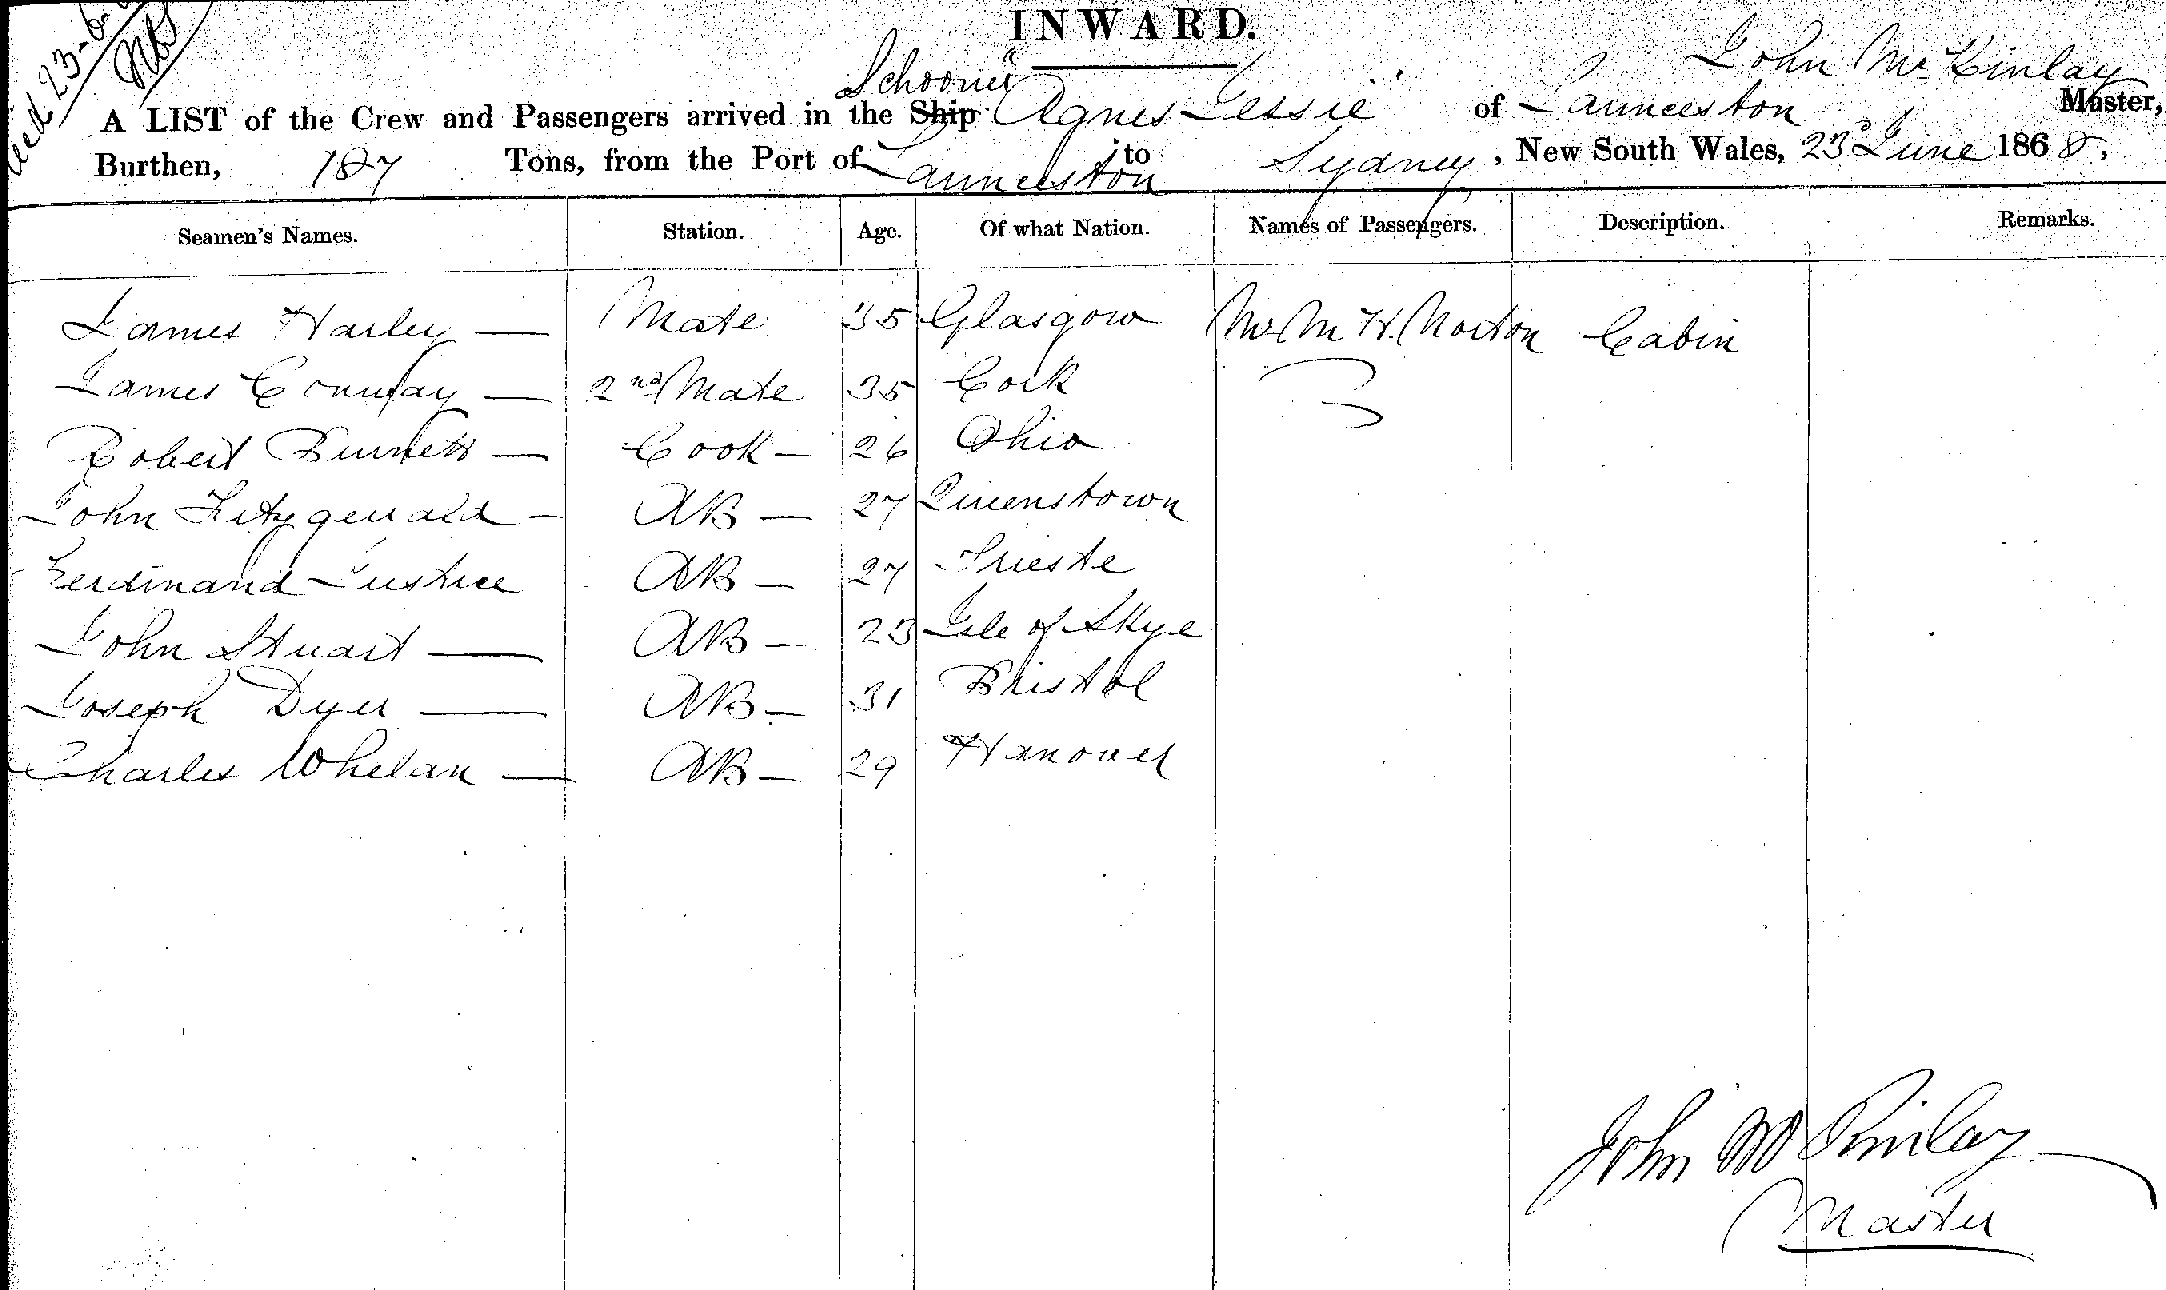 INWARD.
23-6-
Schooner John McKinlay
A LIST of the Crew and Passengers arrived in the Ship Agnes Jessie of Launceston Master,
Burthen, 187 Tons, from the Port of Launceston to Sydney, New South Wales, 23d June 1868.
Seamen's Names. Station. Age. Of what Nation. Names of Passengers. Description. Remarks.
James Harley — Mate 35 Glasgow Mr M H. Norton Cabin
James Conway — 2nd Mate 35 Cork
Robert Burnett — Cook — 26 Ohio
John Fitzgerrald — AB — 27 Queenstown
Ferdinand Justice AB — 27 Trieste
John Stuart — AB — 23 Isle of Skye
Joseph Dyer — AB — 31 Bristol
Charles Whelan — AB — 29 Hanover
John McKinlay
Master